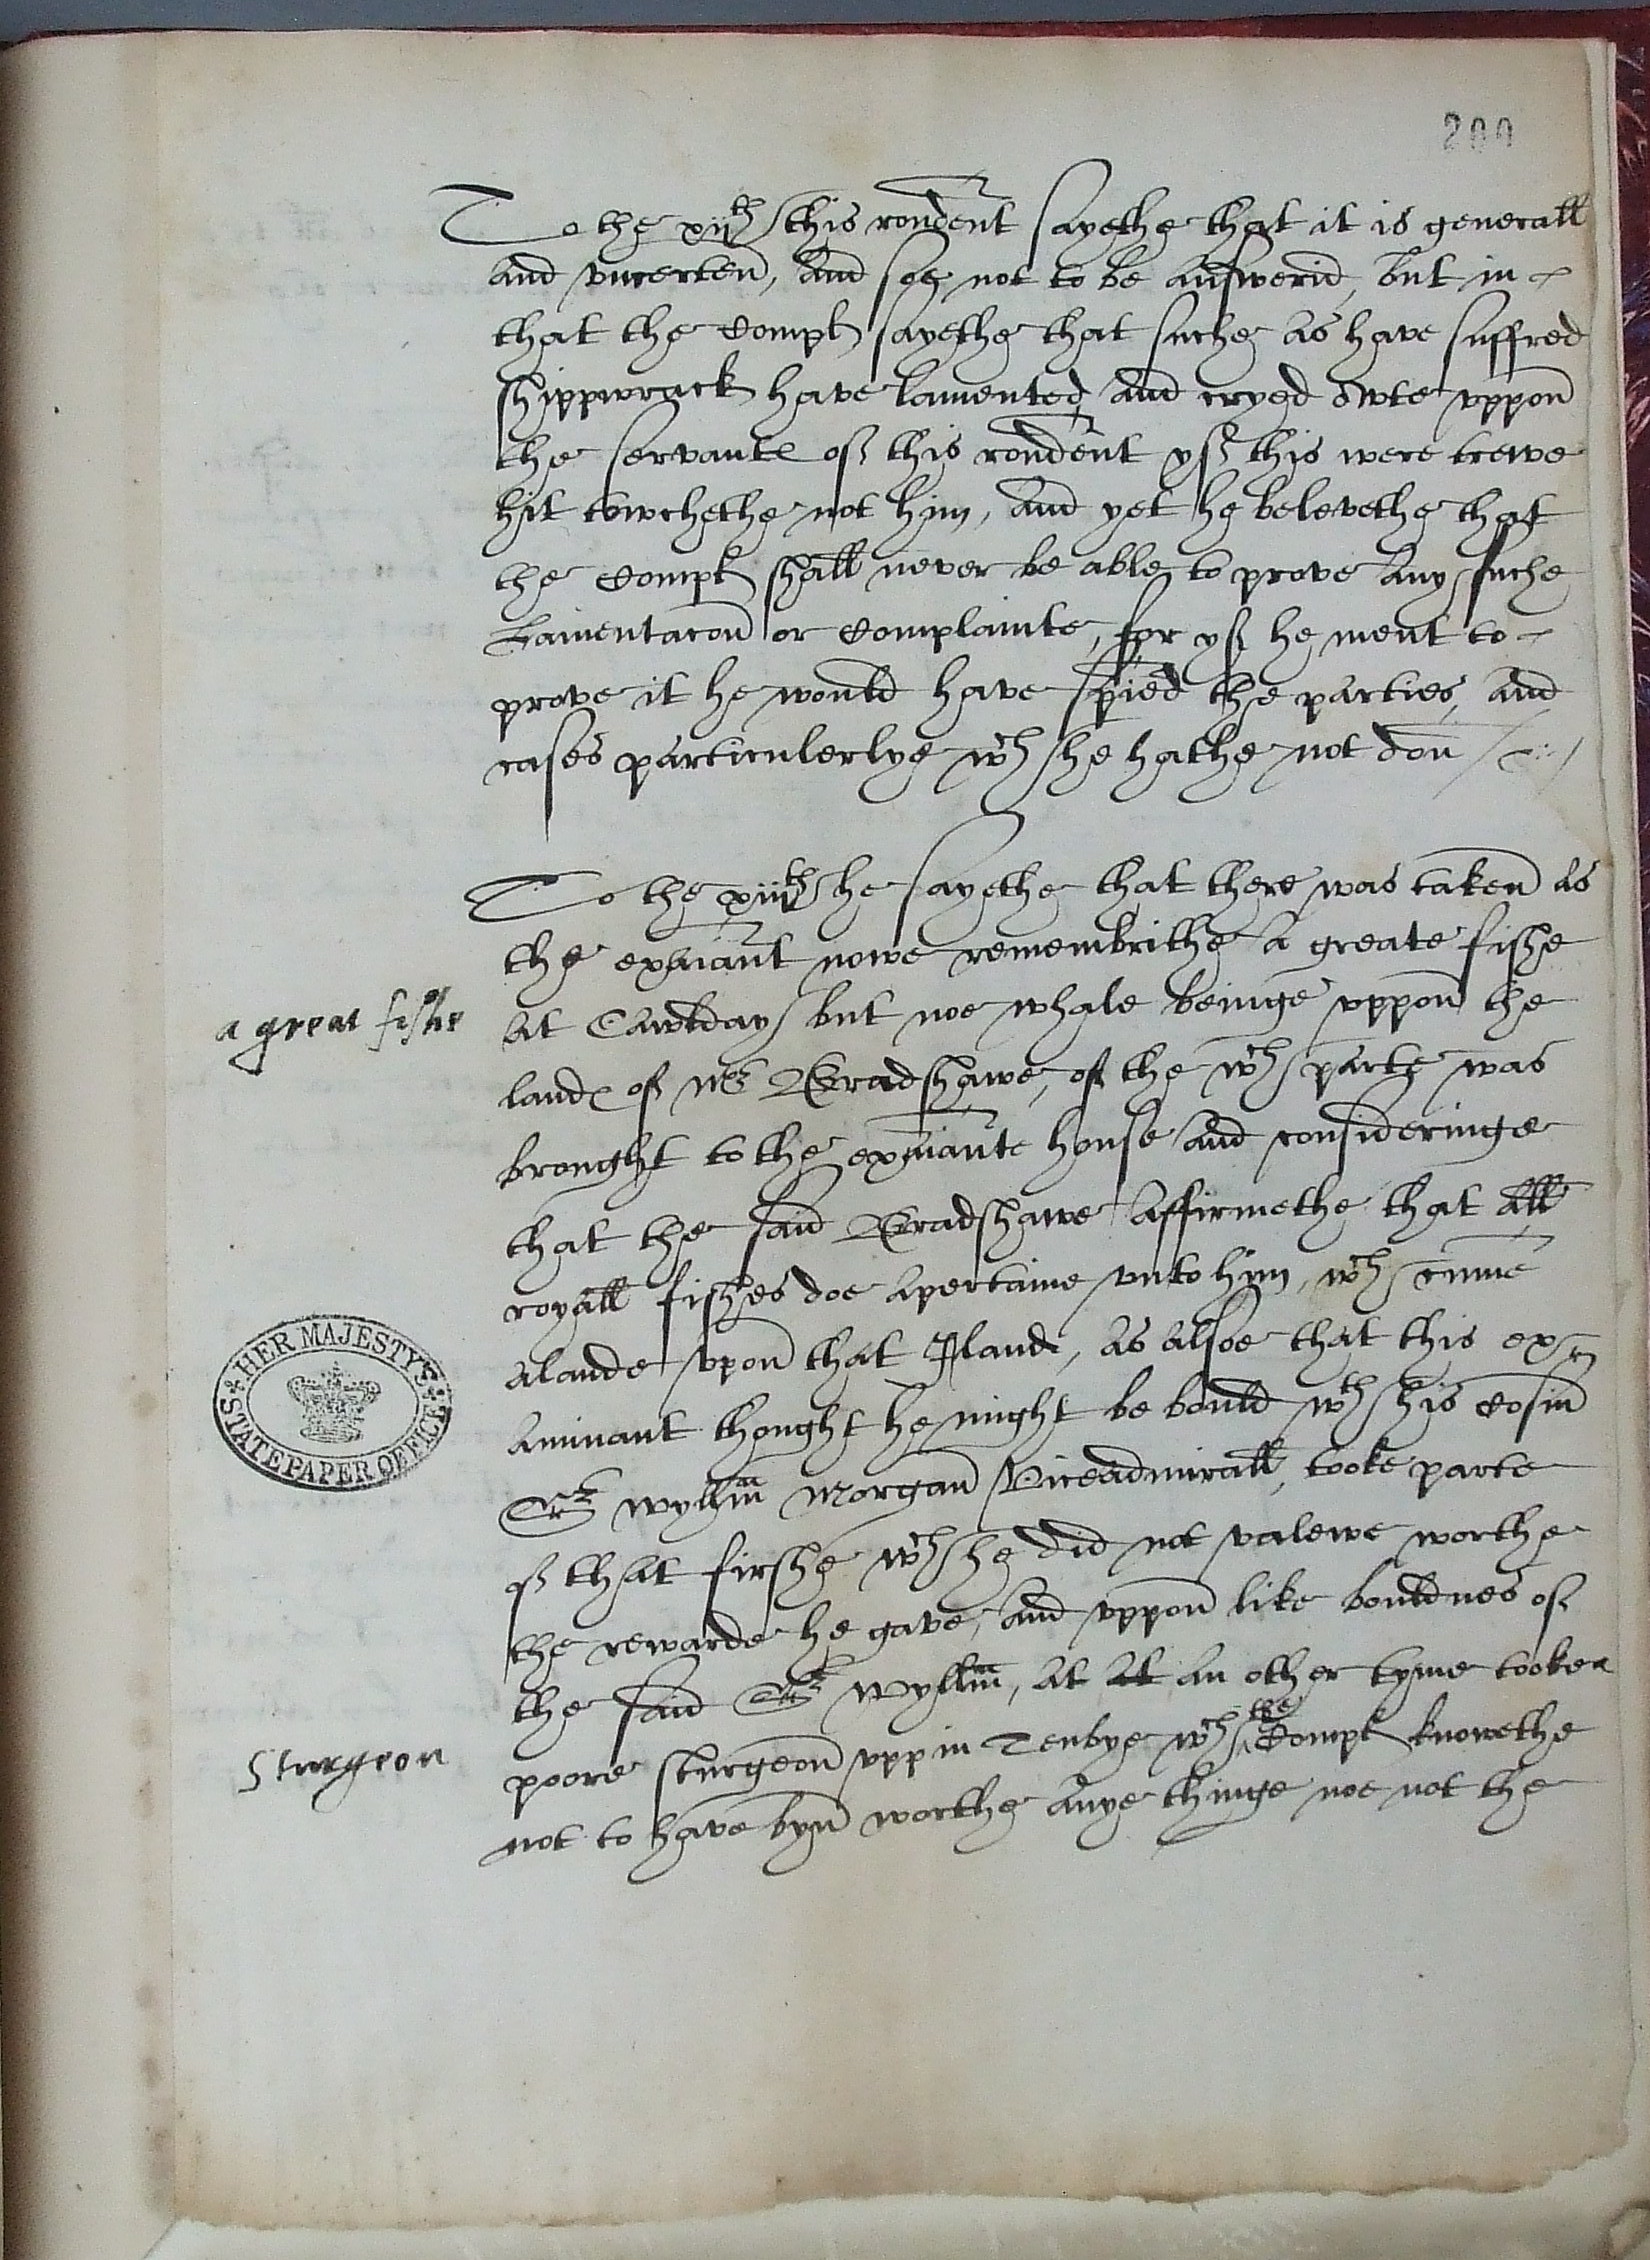 200
To the xijth this rondent sayethe that it is generall
and vncerten, and soe not to be answerid, but in
that the Complt sayethe that suche as have suffred
shippwrack have lamented and cryed owte vppon
the servantes of this rondent yf this were trewe
hit towchethe not him, and yet he belevethe that
the Complt shall never be able to prove any suche
Lamentacon or Complainte, for yf he ment to
prove it he would have spied the parties, and
cases particulerlye wch he hathe not don
To the xiijth he sayethe that there was taken as
the examiant nowe remembrithe a greate fishe
a great fishe
at Cawlday but noe whale beinge vppon the
landes of mr Bradshawe, of the wch parte was
brought to the examiante house and consideringe
that the said Bradshawe affirmethe that all
royall fishes doe apertaine vnto him, wch cume
alande vpon that Iland, as alsoe that this ex
aminant thought he might be bould wth his Cosin
Sr Wyllm Morgan Viceadmirall, tooke parte
of that firshe wch he did not valewe worthe
the rewarde he gave, and vppon like bouldnes of
the said Sr Wyllm, at at an other tyme tooke a
Sturgeon
poore sturgeon vpp in Tenbye wch the Complt knowethe
not to have byn worthe anye thinge noe not the
HER MAJESTY'S
STATE PAPER OFFICE